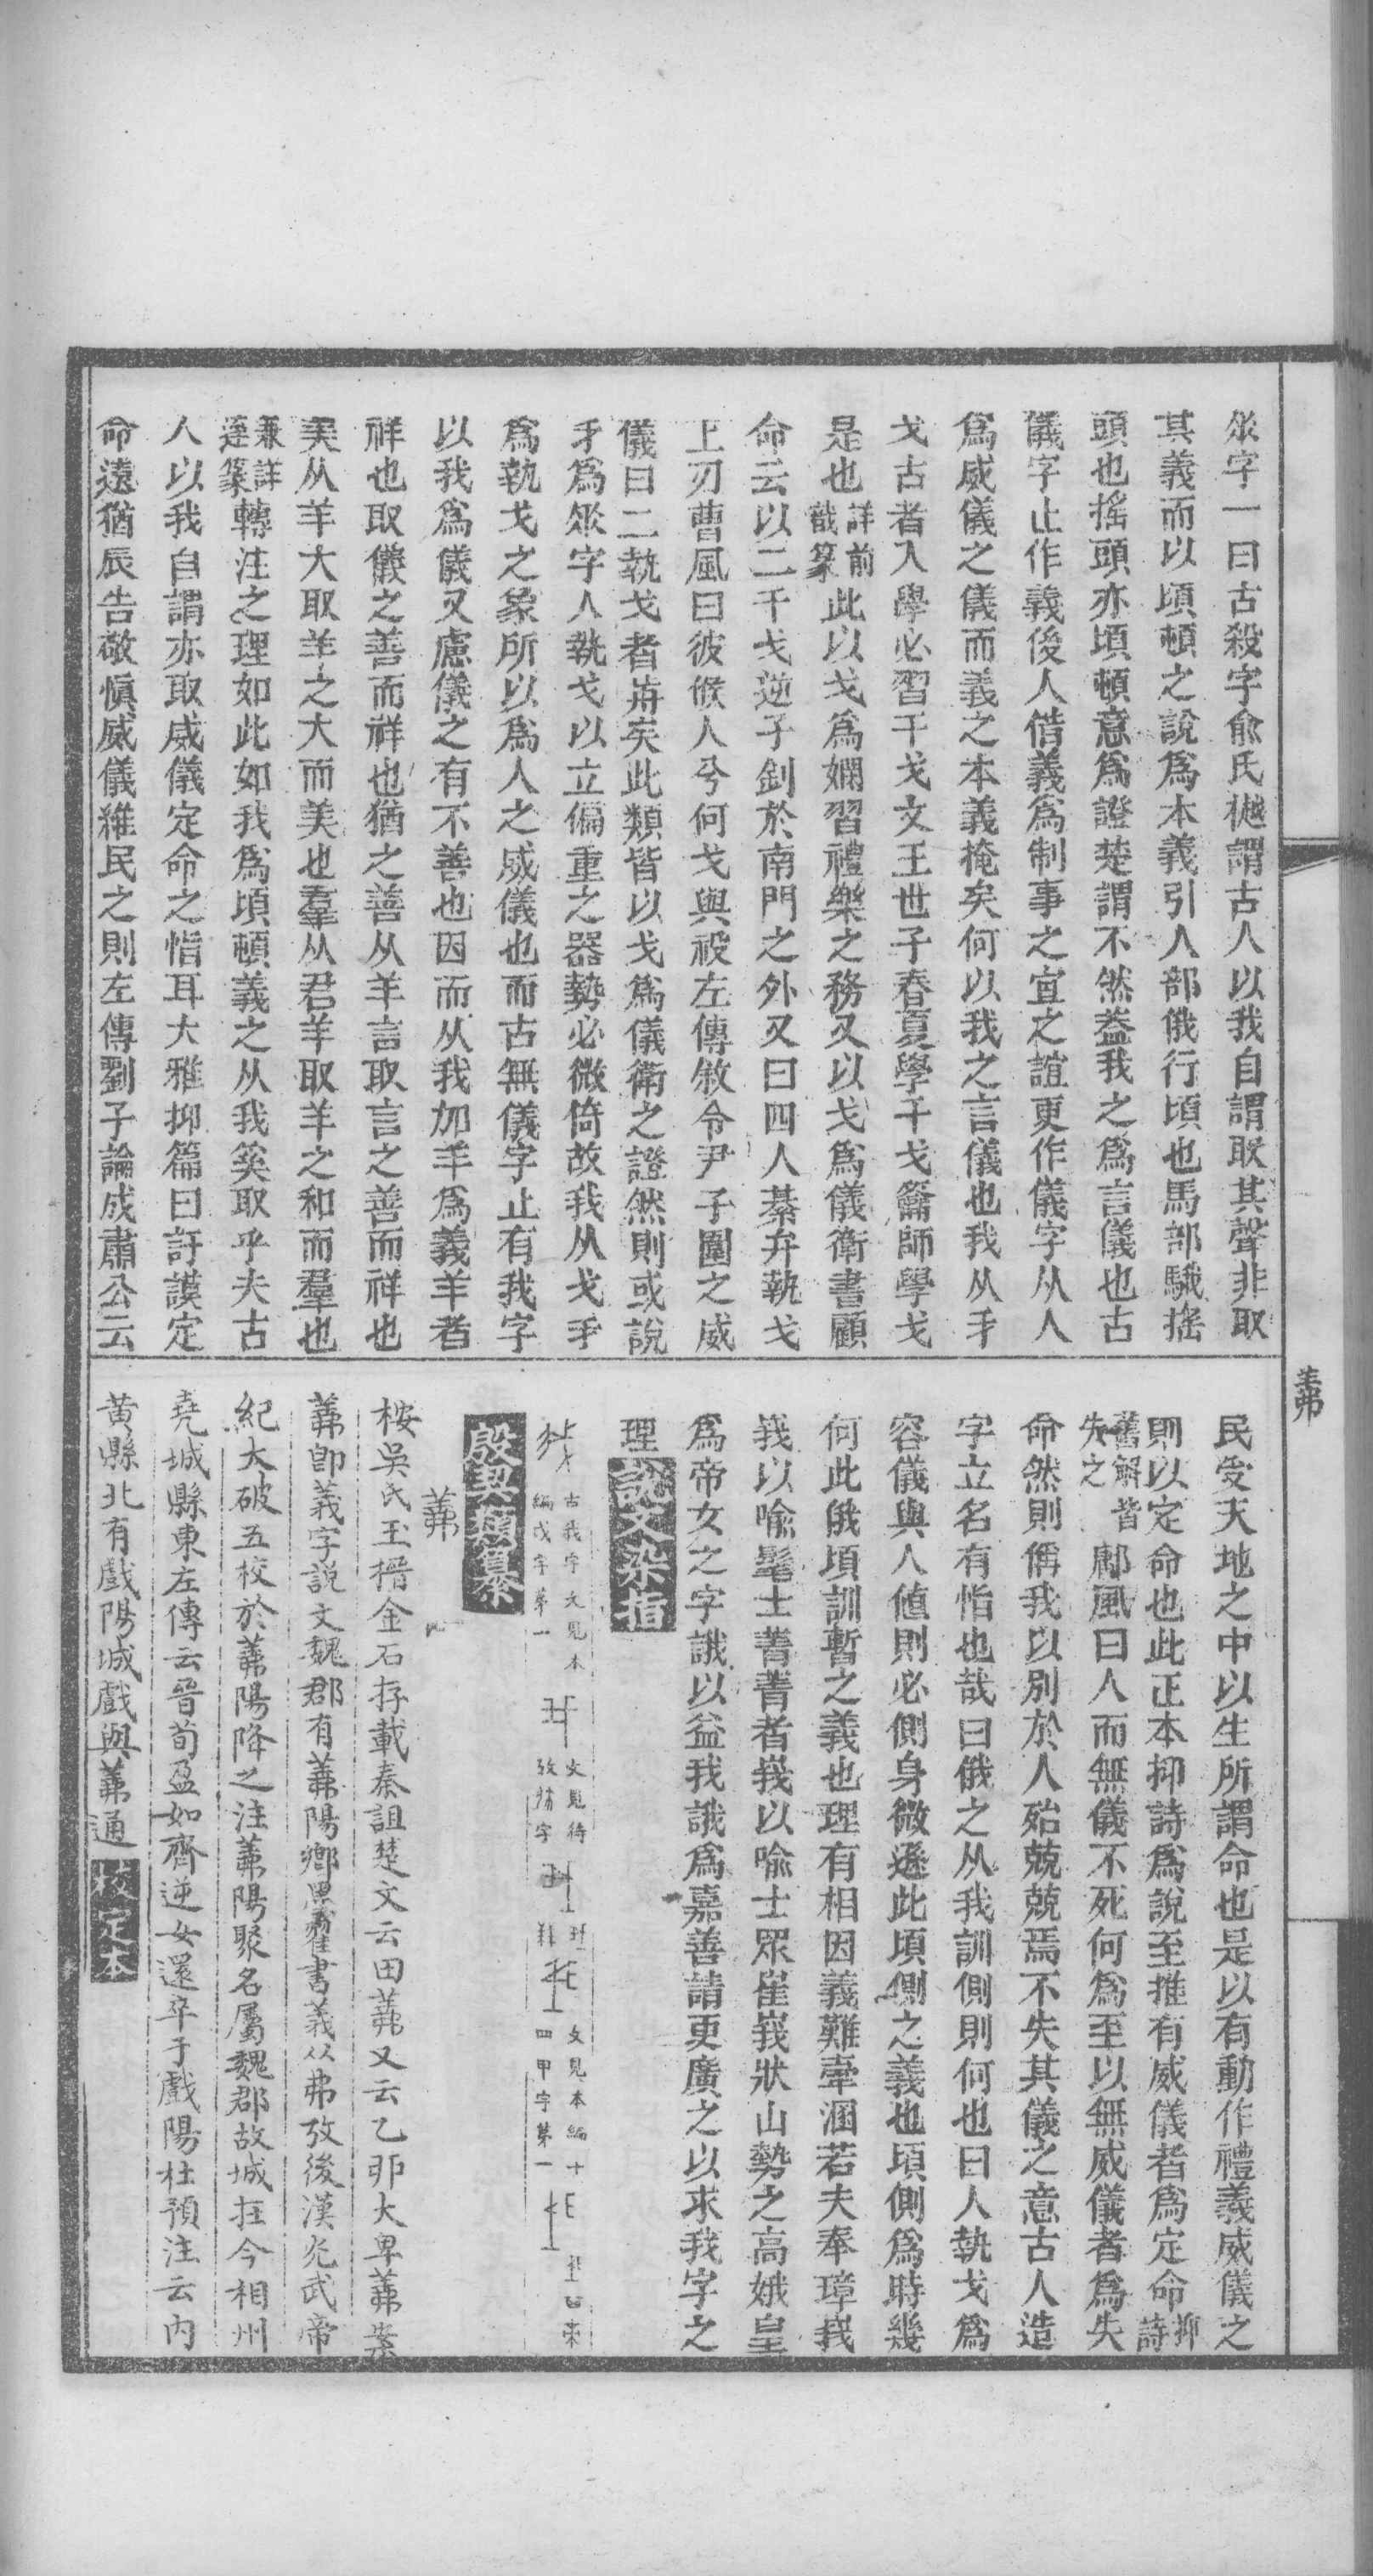 㐺字一曰古殺字俞氏樾謂古人以我自謂取其聲非取
其義而以頃頓之說爲本義引人部俄行頃也馬部騀搖
頭也搖頭亦頃頓意爲證楚謂不然葢我之爲言儀也古
儀字止作義後人借義爲制事之宜之誼更作儀字从人
爲威儀之儀而義之本義掩矣何以我之言儀也我从𠂹
戈古者入學必習干戈文王世子春夏學干戈籥師學戈
是也詳前戠篆此以戈爲嫻習禮樂之務又以戈爲儀衛書顧
命云以二干戈逆子釗於南門之外又曰四人綦弁執戈
上刃曹風曰彼候人兮何戈與祋左傳敘令尹子圍之威
儀曰二執戈者歬矣此類皆以戈爲儀衛之證然則或說
𠂹爲㐺字人執戈以立偏重之器勢必微倚故我从戈𠂹
爲執戈之象所以爲人之威儀也而古無儀字止有我字
以我爲儀又慮儀之有不善也因而从我加羊爲義羊者
祥也取儀之善而祥也猶之善从羊言取言之善而祥也
美从羊大取羊之大而美也羣从君羊取羊之和而羣也
兼詳逹篆轉注之理如此如我爲頃頓義之从我奚取乎夫古
人以我自謂亦取威儀定命之恉耳大雅抑篇曰訏謨定
命遠猶辰告敬愼威儀維民之則左傳劉子論成肅公云
民受天地之中以生所謂命也是以有動作禮義威儀之
則以定命也此正本抑詩爲說至推有威儀者爲定命抑詩
舊解皆失之鄘風曰人而無儀不死何爲至以無威儀者爲失
命然則偁我以別於人殆兢兢焉不失其儀之意古人造
字立名有恉也哉曰俄之从我訓側則何也曰人執戈爲
容儀與人值則必側身微遜此頃側之義也頃側爲時幾
何此俄頃訓暫之義也理有相因義難牽溷若夫奉璋峩
峩以喩髦士菁菁者莪以喩士眾崔峩狀山勢之高娥皇
爲帝女之字誐以益我誐爲嘉善請更廣之以求我字之
理說文柬恉
古我字文見本編戊字第一
文見待攷𢎥字
文見本編十四甲字第一
殷契類纂
羛
桉吳氏玉搢金石存載秦詛楚文云田羛又云乙卯大卑羛桉
羛卽義字說文魏郡有羛陽鄕墨翟書義从弗攷後漢光武帝
紀大破五校於羛陽降之注羛陽聚名屬魏郡故城在今相州
堯城縣東左傳云晉荀盈如齊逆女還卒于戲陽杜預注云內
黃縣北有戲陽城戲與羛通校定本
羛